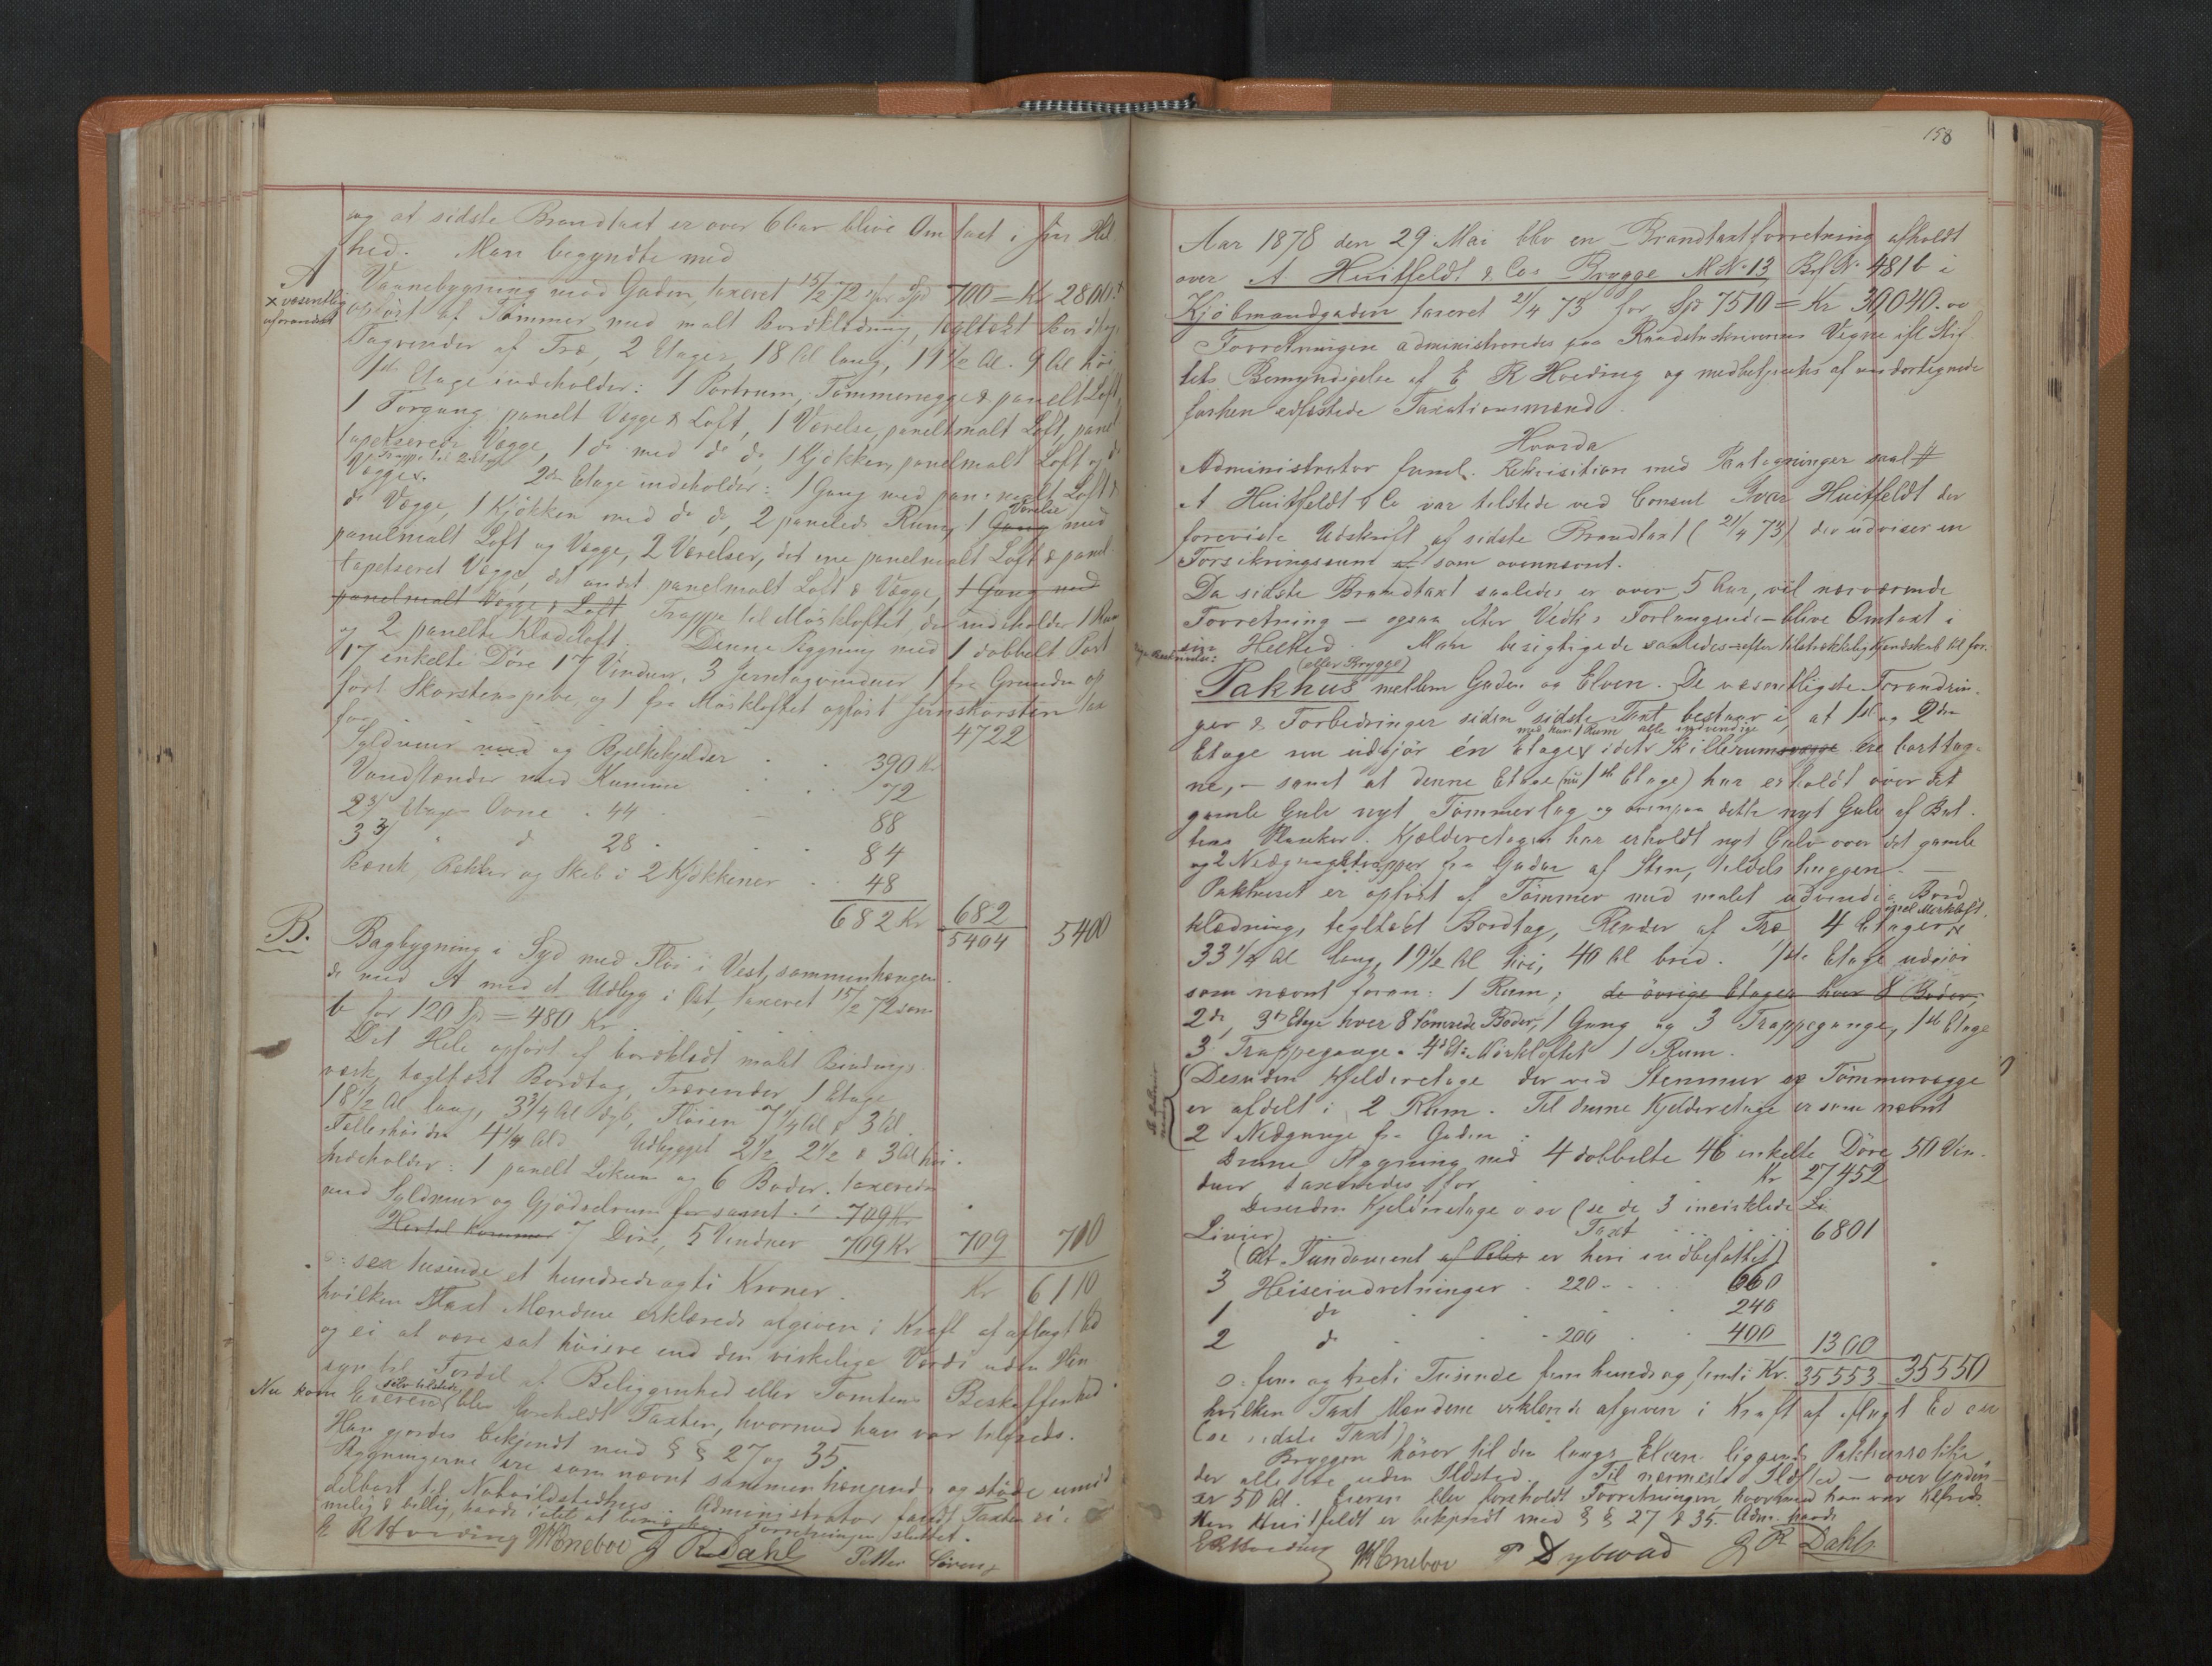 og at sidste Brandtaxt er over 6 Aar blive Omtaxt i sin Hel
hed. Man begyndte med
A Vaanebygning mod Gaden, taxeret 15/2 72 for Spd 700 = Kr 2800
x væsentlig uforandret
opført af Tømmer med malt Bordklædning, tegltækt Bordtag
Tagrender af Træ, 2 Etager, 18 Al lang, 19 1/2 Al. 9 Al høi
1ste Etage indeholder: 1 Portrum, Tømmervægge & panelt Loft,
1 Forgang panelt Vægge & Loft, 1 Værelse, paneltmalt Loft, panel
tapetserede Vægge, 1 do med do do, 1 Kjøkken, panelmalt Loft og do
Trappe til 2 Etage
Vægge. 2den Etage indeholder: 1 Gang med panelmalt Loft &
do Vægge, 1 Kjøkken med do do, 2 panelede Rum, 1 Gang Værelse med
panelmalt Loft og Vægge, 2 Værelser, det ene panelmalt Loft & panel
tapetseret Vægge, det andet panelmalt Loft & Vægge, 1 Gang med
panelmalt Vægge & Loft Trappe til Mørkloftet, der indeholder 1 Rum
og 2 panelte Klædeloft. Denne Bygning med 1 dobbelt Port
17 enkelte Døre 17 Vinduer, 3 Jerntagvinduer 1 fra Grunden op
ført Skorstenspibe, og 1 fra Mørkloftet opført Jernskorsten tax
for 4722
Syldmur med og Bjelkekjelder 390 Kr
Vandstænder med Kumme 72
2 3/ Etages Ovne . 44 88
3 3/ " d 28 84
Bænk, Rækker og Skab i 2 Kjøkkener 48
682 Kr 682
5404 5400
B. Bagbygning i Syd med Fløi i Vest, sammenhængen
de med A med et Udbyg i Øst, taxeret 15/2 72 som
b for 120 Spd = 480 Kr
Det Hele opført af bordklædt malet Bindings
værk, tegltækt Bordtag, Trærender 1 Etage
18 1/2 Al lang, 3 3/4 Al dyb, Fløien 7 1/4 Al & 3 Al.
Fælleshøiden 4 1/4 Al. Udbygget 2 1/2, 2 1/2 & 3 Al høi.
Indeholder: 1 panelt Lokum og 6 Boder. taxeredes
med Syldmur og Gjødselrum for samt. 709 Kr
Hertil kommer 7 Døre, 5 Vinduer 709 Kr 709 710
o: sex tusinde et hundrede og ti Kroner. Kr 6110
hvilken Taxt Mændene erklærede afgiven i Kraft af aflagt Ed
og ei at være sat høiere end den virkelige Værdi uden Hen
syn til Fordel af Beliggenhed eller Tomtens Beskaffenhed
Nu kom Eieren selv tilstede blev foreholdt Taxten, hvormed han var tilfreds.
Han gjordes bekjendt med § § 27 og 35.
Bygningerne ere som nævnt sammenhængende og støde umid
delbart til Naboildstedhus. Administrator fandt Taxten ri
melig & billig, havde intet at bemærke. Forretningen sluttet.
E R Hveding WMEneboe J R Dahl Petter Sørens
158
Aar 1878 den 29 Mai blev en Brandtaxtforretning afholdt
over A Huitfeldt & Cos Brygge M No 13 Brf No 481 b i
Kjøbmandgaden taxeret 21/4 73 for Spd 7510 = Kr 30,040. oc
Forretningen administreredes paa Raadstuskriverens Vegne ifl Stif
tets Bemyndigelse af E R Hveding og medbetjentes af undertegnede
forhen edfæstede Taxationsmænd.
Hvorda
Administrator freml. Rekvisition med Paategninger saal #
A Huitfeldt & Co var tilstede ved Consul Ivar Huitfeldt der
foreviste Udskrift af sidste Brandtaxt (21/4 73) der udviser en
Forsikringssum som ovennævnt.
Da sidste Brandtaxt saaledes er over 5 Aar, vil nærværende
Forretning – ogsaa efter Vedk.s Forlangende – blive Omtaxt i
sin Helhed. Man besigtigede saaledes efter tilstrækkelig Kjendskab til for.
(eller Brygge)
Pakhus mellem Gaden og Elven. De væsentligste Forandrin
ger & Forbedringer siden sidste Taxt bestaar i, at 1ste og 2den
med kun 1 Rum alle indvendige
Etage nu udgjør én Etage x idet Skillerumsvægge ere borttag
ne, – samt at denne Etage (nu 1ste Etage) har erholdt over det
gamle Gulv nyt Tømmerlag og ovenpaa dette nyt Gulv af Bat
tens Planker. Kjælderetagen har erholdt nyt Gulv over det gamle
og 2 Nedgangstrapper fra Gaden af Sten, tildels huggen. —
Pakhuset er opført af Tømmer med malet udvendig Bord
klædning, tegltækt Bordtag, Render af Træ 4 Etager x med Mørkloft.
33 1/4 Al lang, 19 1/2 Al høi, 40 Al bred. 1ste Etage udgjør
som nævnt foran: 1 Rum; de øvrige Etager hver 8 Boder,
2de, 3de Etage hver 8 tømrede Boder, 1 Gang og 3 Trappegange, 1ste Etage
3 Trappegange. 4de Et: Mørkloftet 1 Rum.
Desuden Kjelderetage der ved Stenmur og Tømmervægge
er afdelt i 2 Rum. Til denne Kjelderetage er som nævnt
2 Nedgange fra Gaden:
Denne Bygning med 4 dobbelte 46 enkelte Døre 50 Vin
duer taxeredes for Kr 27452
Desuden Kjelderetage o sv (se de 3 incirklede Li
Linier) Taxt 6801
(At Fundament af Peler er heri indbefattet)
3 Heiseindretninger . 220 660
1 do 240
2 d 200 400 1300
o: fem og treti Tusinde fem hundr og femti Kr. 35553 35550
hvilken Taxt Mændene erklærede afgiven i Kraft af aflagt Ed osv
(se sidste Taxt)
Bryggen hører til den langs Elven liggende Pakhusrække
der alle ere uden Ildsted. Til nærmeste Ildsted – over Gaden –
er 50 Al. Eieren blev foreholdt Forretningen, hvormed han var tilfreds.
Herr Huitfeldt er bekjendt med § § 27 & 35. Adm. havde
E R Hveding WMEneboe P Dybwad J R Dahl